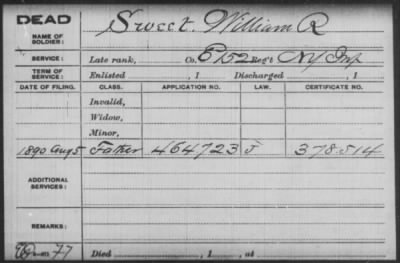 DEAD
NAME OF SOLDIER: Sweet, William R
SERVICE: Late rank, Co. E 152 Reg't N Y Inf
TERM OF SERVICE: Enlisted , 1 Discharged , 1
DATE OF FILING. CLASS. APPLICATION NO. LAW. CERTIFICATE NO.
Invalid,
Widow,
Minor,
1890 Aug 5 Father 464723 J 378.514
ADDITIONAL SERVICES:
REMARKS:
77 Died , 1 , at